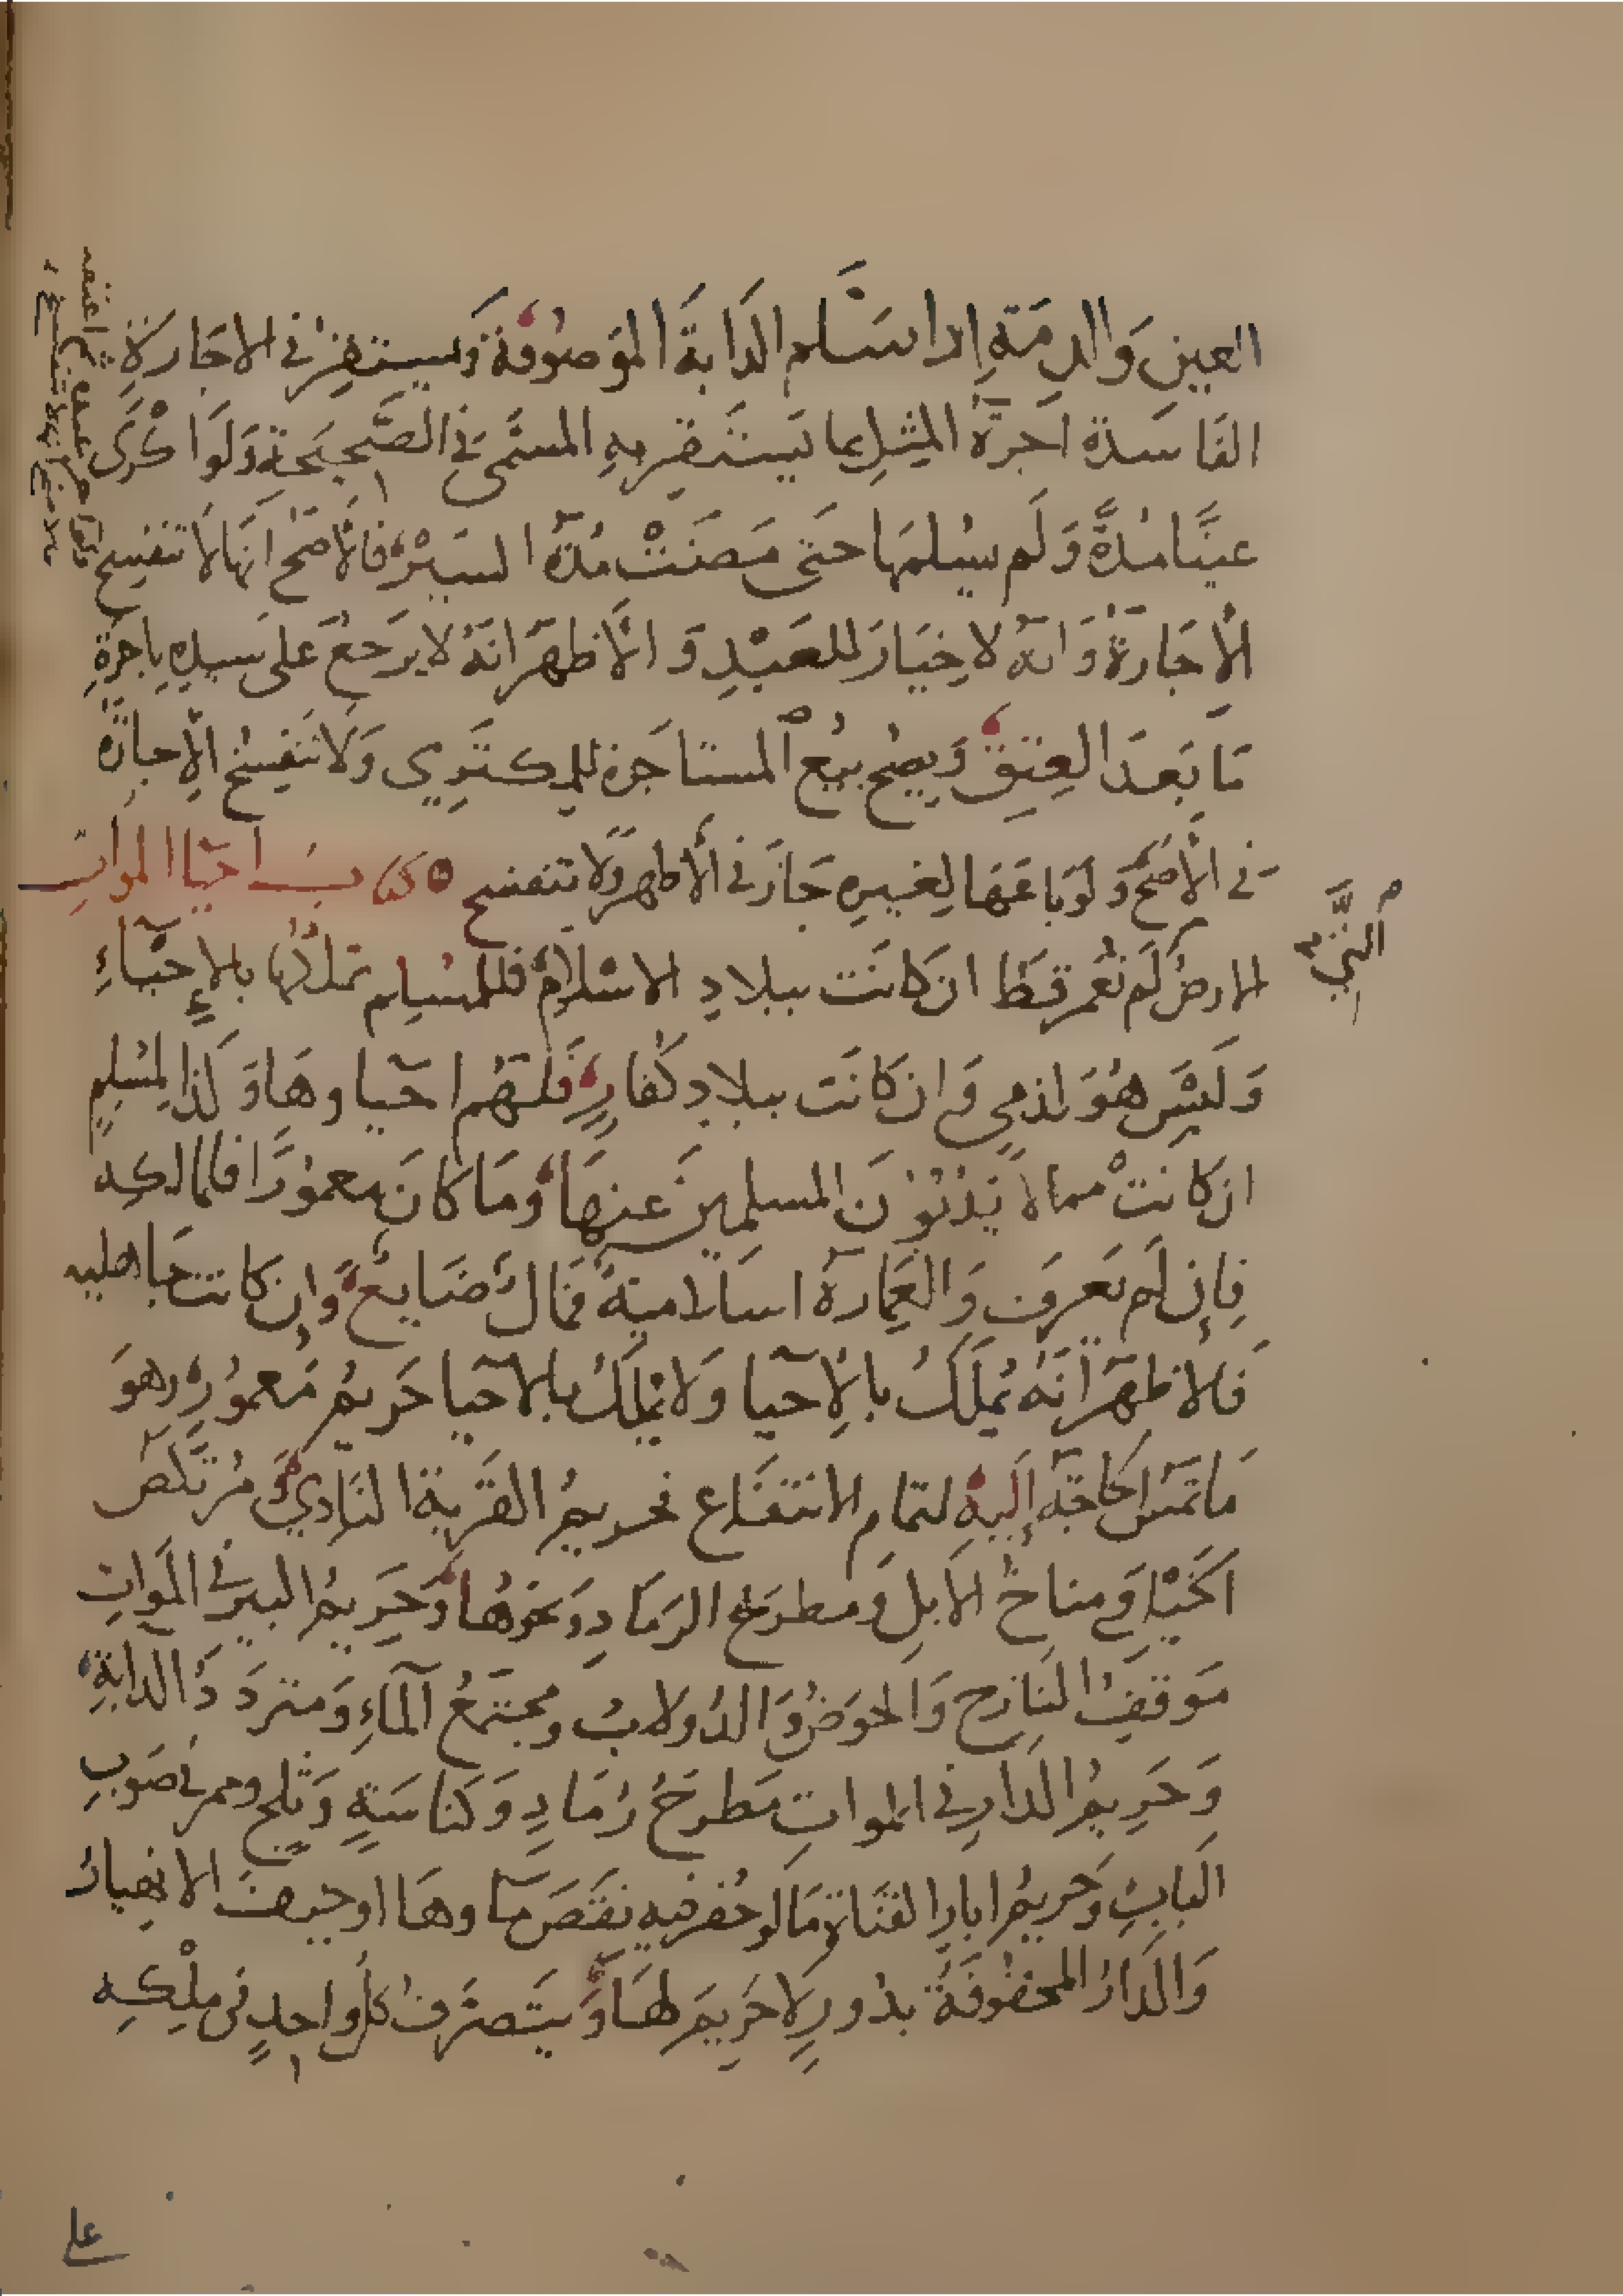 العين والذمة إذا سَلم الدابةَ الموصُوفة وَيستقِرُ في الاجَارَةِ
الفَاسَدة اجرَةُ المِثلِ بما يَستَقِر بهِ المسَمَّى في الصَّحيحَةِ وَلَوا كْرَى
عينًا مُدةً وَلَم يسُلمهَا حتى مَضَتْ مُدةُ السَيْرِ فالأصَح انهَا لاَ تنفسِخ
الأجَارةُ وَانهُ لا خيَارَ للعَبْدِ وَالأظهَر انهُ لا يَرجعُ على سَيدِهِ باجرَةِ
مَا بَعدَ العِتقِ وَيصِح بيعُ المستاجَرة للمكتَرِي وَلا تَنفسِخ الإجارَة
في الأصَحّ وَلَو باعَهَا لِغيرِه جَازَ في الأظهرِ وَلا تنفسخ ه كتاب احيَا المَواتِ
الارضُ لَم تُعمر قَط ان كانَت ببلادِ الاسْلاَمِ فللمُسلِم تملكُها بالإحيَاءِ
وَلَيْسَ هُوَ لذمي وَان كانَت ببلادِ كُفارٍ فَلهُم احيَاوهَا وَكَذا لمُسْلِمٍ
ان كانتْ مما لاَ يَذُبُّونَ المسلمِينَ عنهَا وَمَا كانَ معمُورًا فلمالكه
فإن لَم يُعرف وَالعِمارةُ اسلاميةٌ فَمالُ ضَايعٌ وَإن كانت جَاهليه
فَالاظهَر انَهُ يُملَكُ بالإحيا وَلا يُملكُ بالاحيَا حَريمُ مَعمُورٍ وهوَ
مَا تمَسُ الحَاجَة إليهِ لتمام الانتفَاع فحريمُ القَريةِ النَادِي وَمُرتَكَضُ
الخَيْلِ وَمناخُ الابِلِ وَمطرَحُ الرَمَادِ وَنحوُهَا وَحَرِيمُ البير في المَواتِ
مَوقفُ النَازح وَالحوَضُ وَالدُولابُ ومجتَمَعُ المآءِ وَمترَدَدُ الدابةِ
وَحَرِيمُ الدَارِ في المواتِ مَطرحُ رَمَادٍ وَكناسَةٍ وَثلجٍ وممر في صَوبِ
البَابِ وَحَريمُ ابارِ القنَاةِ مَا لَو حُفر فيهِ نقَصَ مآوهَا اوخيف الانهيارُ
وَالدَارُ المحفُوفَةُ بدُورٍ لا حَرِيمَ لهَا وَيَتَصرَفُ كلُ واحدٍ في ملْكِه
التِّي
على